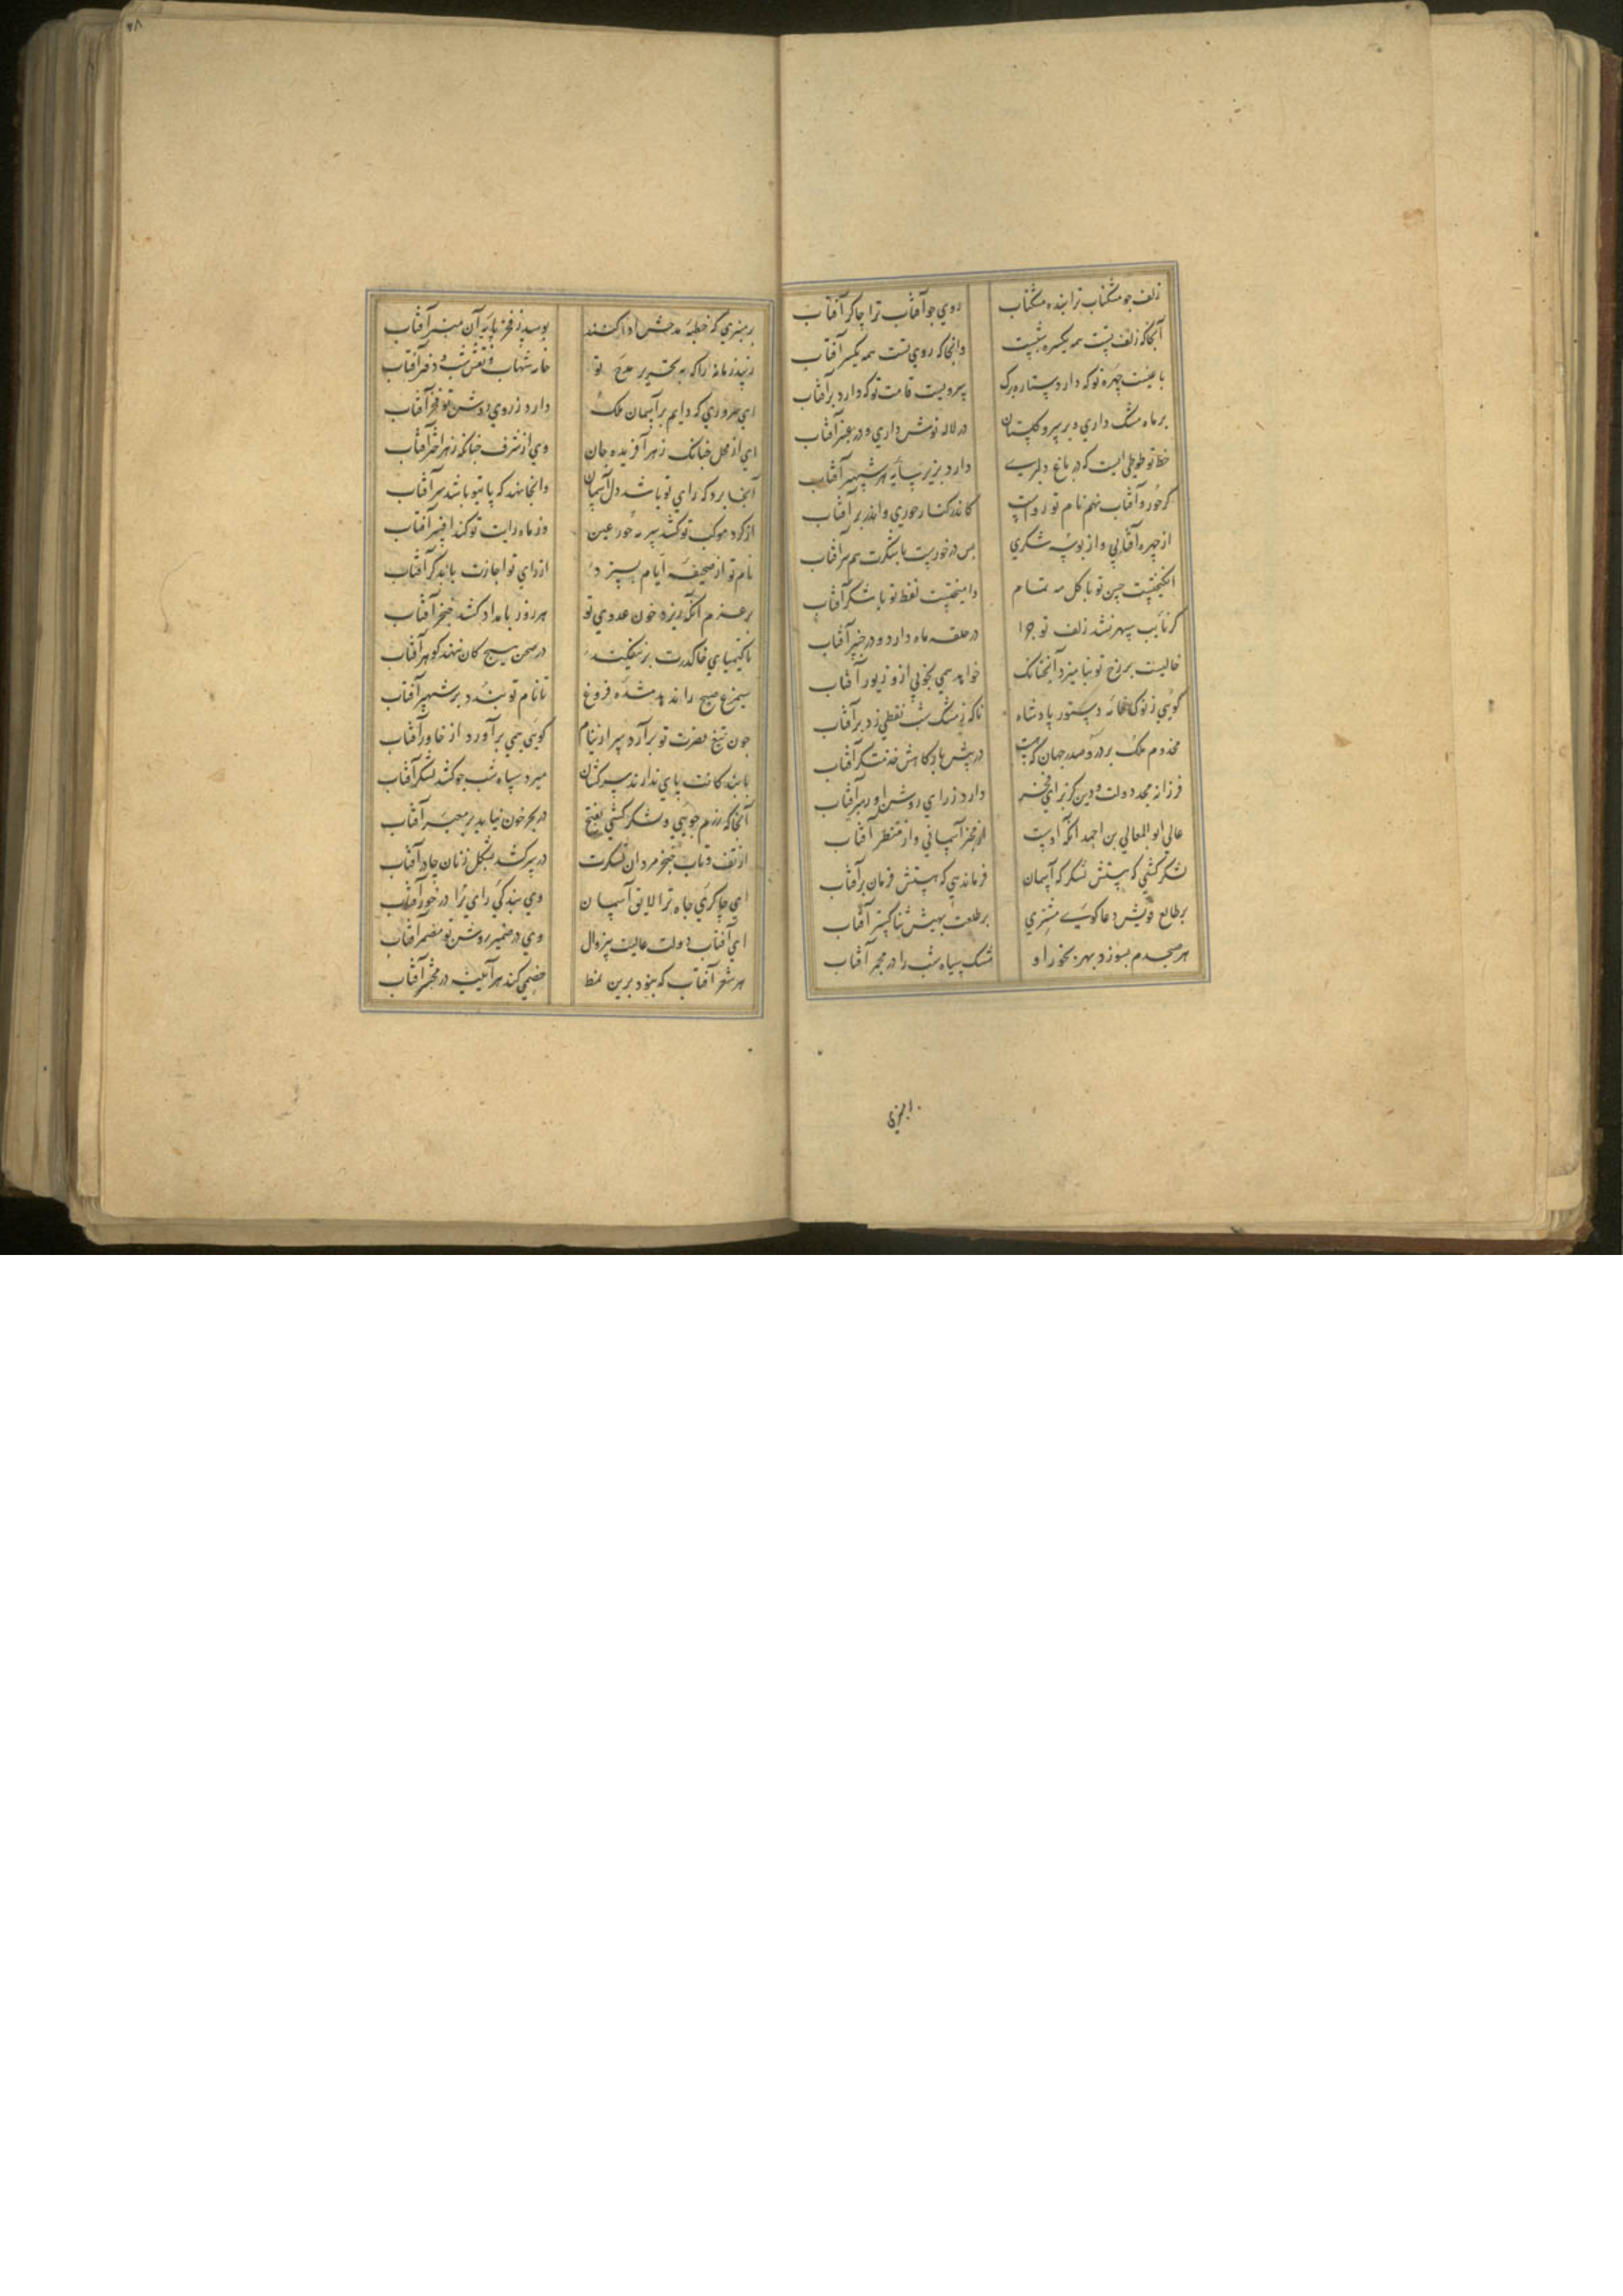 زلف چو مشکناب ترا بنده مشکناب روي چو آفتاب ترا چاکر آفتاب
آنجا که زلف تست همه یکسره شبست وانجا که روي تست همه یکسر آفتاب
باغیست چهره تو که دارد ستاره برگ سرویست قامت تو که دارد بر آفتاب
بر ماه مشک داري و بر سرو گلستان در لاله نوش داري و در عنبر آفتاب
خط تو طوطی است که در باغ دلبرے دارد بزیر سایه هر شهپر آفتاب
گر حور و آفتاب نهم نام تو رواست کاندر کنار حوري واندر بر آفتاب
از چهره آفتابي و از بوسه شکري بس در خورست با شکرت همبر آفتاب
انگیختست حسن تو با گل مه تمام وامیختست لفظ تو با شکر آفتاب
گر نایب سپهر نشد زلف تو چرا در حلقه ماه دارد و در چنبر آفتاب
خالیست بر رخ تو بنامیزد آنچنانک خواهد همي بخوبي ازو زیور آفتاب
گویي ز نوک خامه دستور پادشاه ناگه ز مشک شب نقطي زد بر آفتاب
مخدوم ملک پرور و صدر جهان که هست در پیش بارگاهش خدمتگر آفتاب
فرزانه مجد دولت و دین کز براي فخر دارد ز راي روشن او رهبر آفتاب
عالي ابوالمعالي بن احمد آنکه اوست از مخبر آسماني و از منظر آفتاب
لشکر کشي که هستش لشکر که آسمان فرماندهي که هستش فرمان بر آفتاب
بر طالع قویش دعا گوے مشتري بر طلعت بهیش ثنا گستر آفتاب
هر صبحدم بسوزد بهر بخور او مشک سیاه شب را در مجمر آفتاب
بر منبري
بر منبري که خطبه مدحش ادا کنند بوسد ز فخر پایه آن منبر آفتاب
زیبد زمانه را که به تحریر مدح تو خامه شهاب و نقش شب و دفتر آفتاب
اي سروري که دایم بر آسمان ملک دارد ز روي روشن تو فخر آفتاب
اي از محل چنانک زهر آفریده جان وي از شرف چنانکه زهر اختر آفتاب
آنجا برد که راي تو باشد دل آسمان وانجا نهد که پاي تو باشد سر آفتاب
از گرد موکب تو کشد سرمه حور عین وز ماه رایت تو کند افسر آفتاب
نام تو از صحیفه ایام بستردد از راي تو اجازت یابد گر آفتاب
بر عزم آنکه ریزد خون عدوي تو هر روز بامداد کشد خنجر آفتاب
تا کیمیاي خاک درت بر نیفکند در صحن هیچ کان ننهد گوهر آفتاب
سیمرغ صبح را ندهد مژده فروغ تا نام تو نبندد بر شهپر آفتاب
چون تیغ نصرت تو برآرد سر از نیام گویي همي برآورد از خاور آفتاب
با بندگانت پاي ندارند سرکشان میرد سپاه شب چو کشد لشکر آفتاب
آنجا که رزم جویي و لشکر کشي بفتح در بحر خون نیابد بر معبر آفتاب
از تف و تاب خنجر مردان لشکرت در سر کشد بشکل زنان چادر آفتاب
اي چاکري جاه ترا لایق آسمان وي بندگي راي ترا در خور آفتاب
اي آفتاب دولت عالیت بیزوال وي در ضمیر روشن تو مضمر آفتاب
هر شعر آفتاب که نبود برین نمط خصمي کند هر آینه در محشر آفتاب